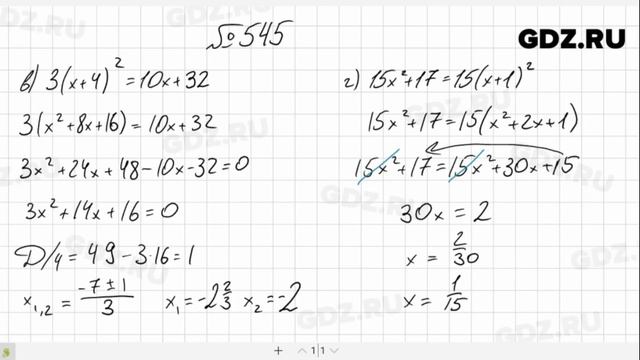 №545
GDZ.RU
в) 3(x+4)² = 10x+32
3(x²+8x+16) = 10x+32
3x²+24x+48-10x-32=0
3x²+14x+16=0
D/4 = 49-3·16=1
x₁,₂ = (-7±1)/3 x₁=-2 2/3 x₂=-2
г) 15x²+17=15(x+1)²
15x²+17=15(x²+2x+1)
15x²+17=15x²+30x+15
30x = 2
x = 2/30
x = 1/15
1\1